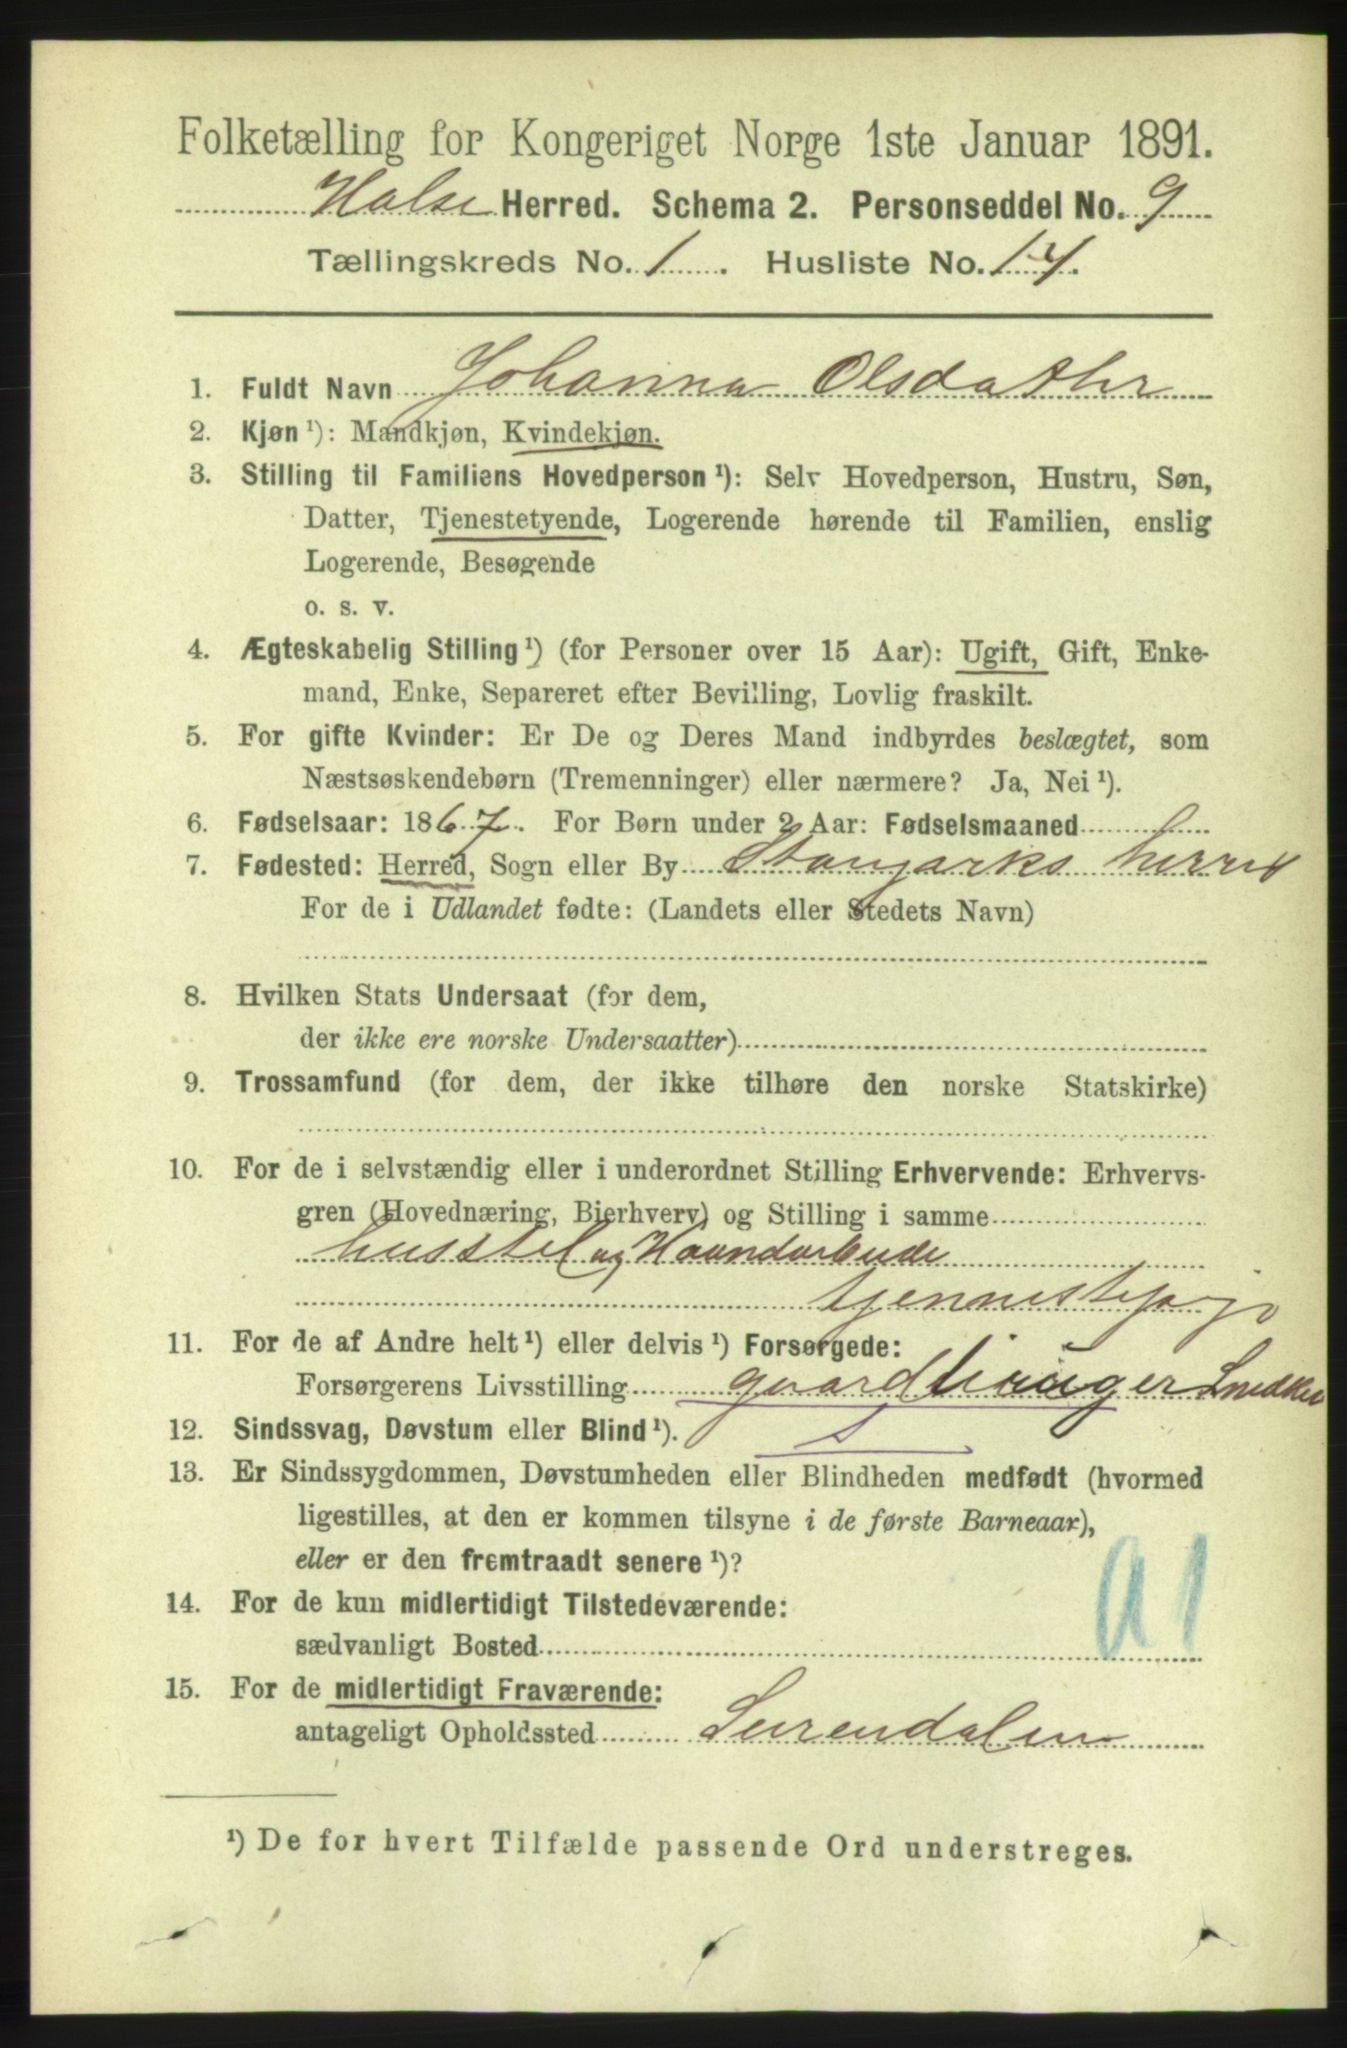 Folketælling for Kongeriget Norge 1ste Januar 1891.
Halse Herred. Schema 2. Personseddel No. 9
Tællingskreds No. 1. Husliste No. 14.
1. Fuldt Navn Johanna Olsdather
2. Kjøn ¹): Mandkjøn, Kvindekjøn.
3. Stilling til Familiens Hovedperson ¹): Selv Hovedperson, Hustru, Søn,
Datter, Tjenestetyende, Logerende hørende til Familien, enslig
Logerende, Besøgende
o. s. v.
4. Ægteskabelig Stilling ¹) (for Personer over 15 Aar): Ugift, Gift, Enke-
mand, Enke, Separeret efter Bevilling, Lovlig fraskilt.
5. For gifte Kvinder: Er De og Deres Mand indbyrdes beslægtet, som
Næstsøskendebørn (Tremenninger) eller nærmere? Ja, Nei ¹).
6. Fødselsaar: 1867. For Børn under 2 Aar: Fødselsmaaned
7. Fødested: Herred, Sogn eller By Stangarks herred
For de i Udlandet fødte: (Landets eller Stedets Navn)
8. Hvilken Stats Undersaat (for dem,
der ikke ere norske Undersaatter)
9. Trossamfund (for dem, der ikke tilhøre den norske Statskirke)
10. For de i selvstændig eller i underordnet Stilling Erhvervende: Erhvervs-
gren (Hovednæring, Bierhverv) og Stilling i samme
husstel og Haandarbeide
11. For de af Andre helt ¹) eller delvis ¹) Forsørgede:
Forsørgerens Livsstilling Snedker
12. Sindssvag, Døvstum eller Blind ¹).
13. Er Sindssygdommen, Døvstumheden eller Blindheden medfødt (hvormed
ligestilles, at den er kommen tilsyne i de første Barneaar),
eller er den fremtraadt senere ¹)?
14. For de kun midlertidigt Tilstedeværende:
sædvanligt Bosted
a1
15. For de midlertidigt Fraværende:
antageligt Opholdssted Surendalen
¹) De for hvert Tilfælde passende Ord understreges.